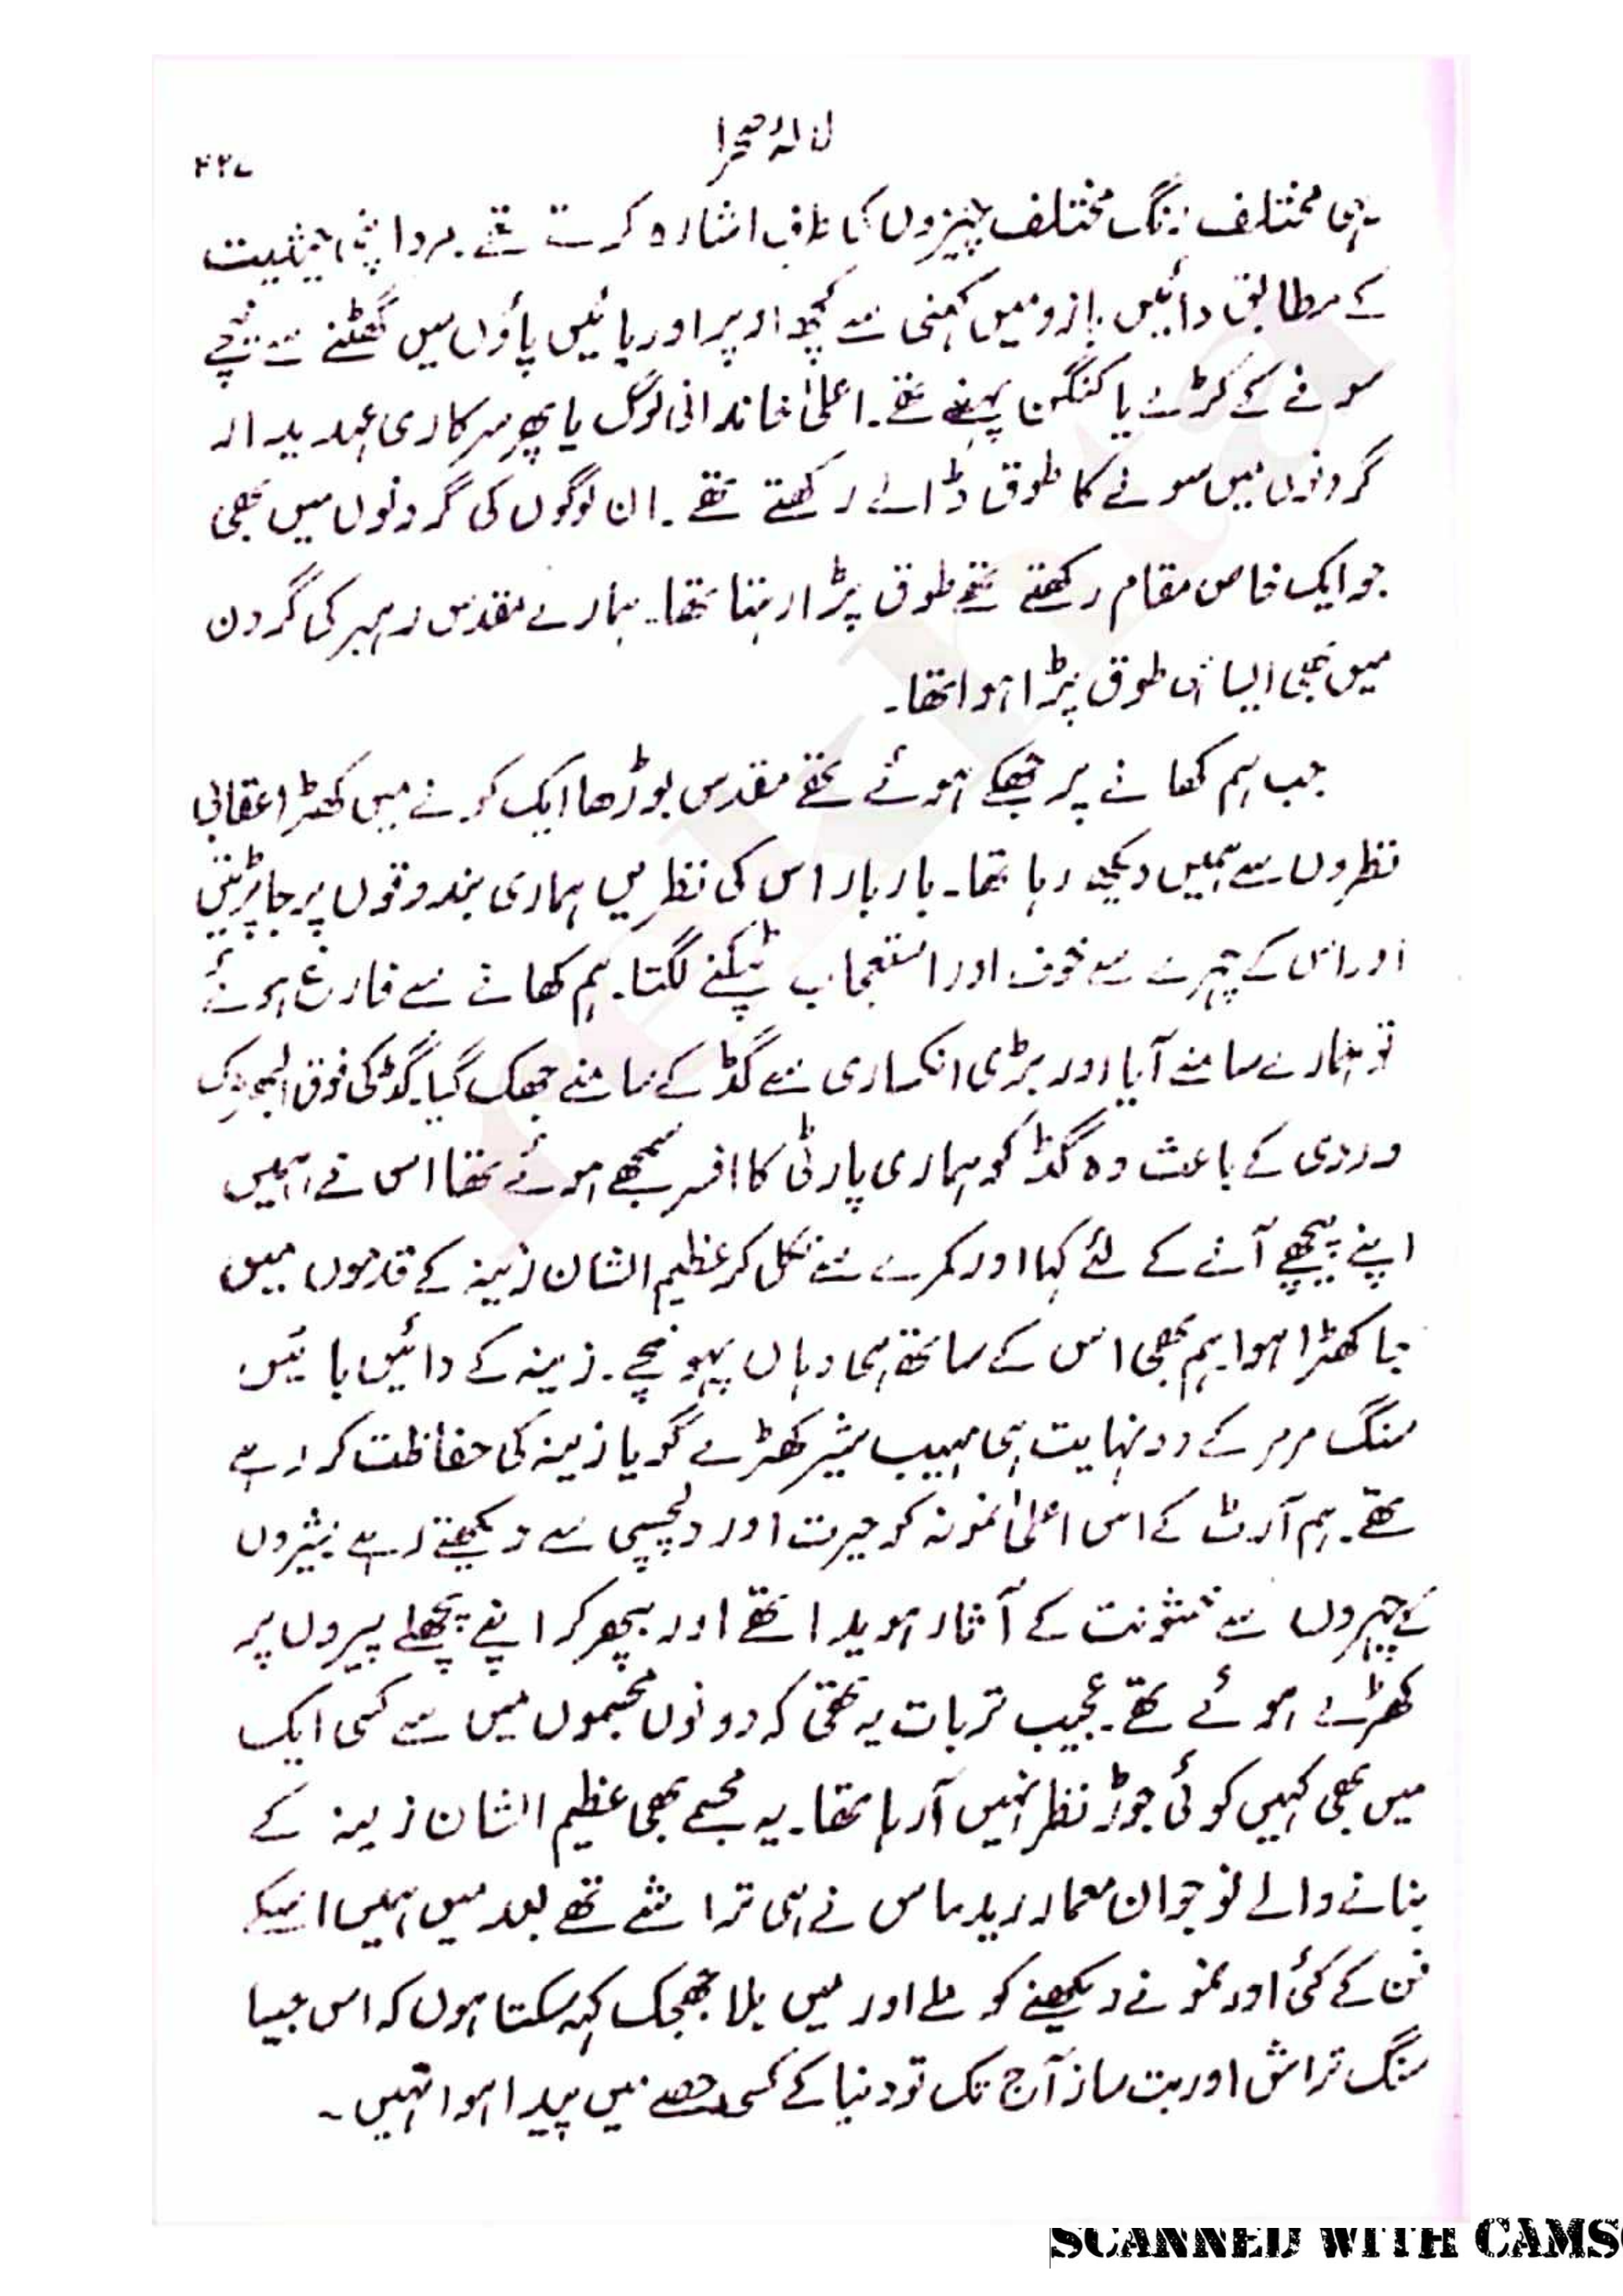 لالۂ صحرا
۴۲۷
یہی مختلف رنگ مختلف چیزوں کی طرف اشارہ کرتے تھے۔ مرد اپنی حیثیت
کے مطابق دائیں بازو میں کہنی سے کچھ اوپر اور پائیں پاؤں میں گھٹنے سے نیچے
سونے کے کڑے یا کنگن پہنے تھے۔ اعلیٰ خاندانی لوگ یا پھر سرکاری عہدیدار
گردنوں میں سونے کا طوق ڈالے رکھتے تھے۔ ان لوگوں کی گردنوں میں بھی
جو ایک خاص مقام رکھتے تھے طوق پڑا رہتا تھا۔ ہمارے مقدس رہبر کی گردن
میں بھی ایسا ہی طوق پڑا ہوا تھا۔
جب ہم کھانے پر جھکے ہوئے تھے مقدس بوڑھا ایک کونے میں کھڑا عقابی
نظروں سے ہمیں دیکھ رہا تھا۔ بار بار اس کی نظریں ہماری بندوقوں پر جا پڑتیں
اور اس کے چہرے سے خوف اور استعجاب ٹپکنے لگتا۔ ہم کھانے سے فارغ ہوئے
تو ہمارے سامنے آیا اور بڑی انکساری سے گڈ کے سامنے جھک گیا۔ گڈ کی فوق البھڑک
وردی کے باعث وہ گڈ کو ہماری پارٹی کا افسر سمجھے ہوئے تھا اس نے ہمیں
اپنے پیچھے آنے کے لئے کہا اور کمرے سے نکل کر عظیم الشان زینہ کے قدموں میں
جا کھڑا ہوا۔ ہم بھی اس کے ساتھ ہی وہاں پہونچے۔ زینہ کے دائیں بائیں
سنگ مرمر کے دو نہایت ہی مہیب شیر کھڑے گویا زینہ کی حفاظت کر رہے
تھے۔ ہم آرٹ کے اس اعلیٰ نمونہ کو حیرت اور دلچسپی سے دیکھتے رہے شیروں
کے چہروں سے خشونت کے آثار ہویدا تھے اور بپھر کر اپنے پچھلے پیروں پر
کھڑے ہوئے تھے۔ عجیب تر بات یہ تھی کہ دونوں مجسموں میں سے کسی ایک
میں بھی کہیں کوئی جوڑ نظر نہیں آرہا تھا۔ یہ مجسمے بھی عظیم الشان زینہ کے
بنانے والے نوجوان معمار ریدماس نے ہی تراشے تھے بعد میں ہمیں اسکے
فن کے کئی اور نمونے دیکھنے کو ملے اور میں بلا جھجک کہہ سکتا ہوں کہ اس جیسا
سنگ تراش اور بت ساز آج تک تو دنیا کے کسی حصے میں پیدا ہوا نہیں۔
SCANNED WITH CAMS